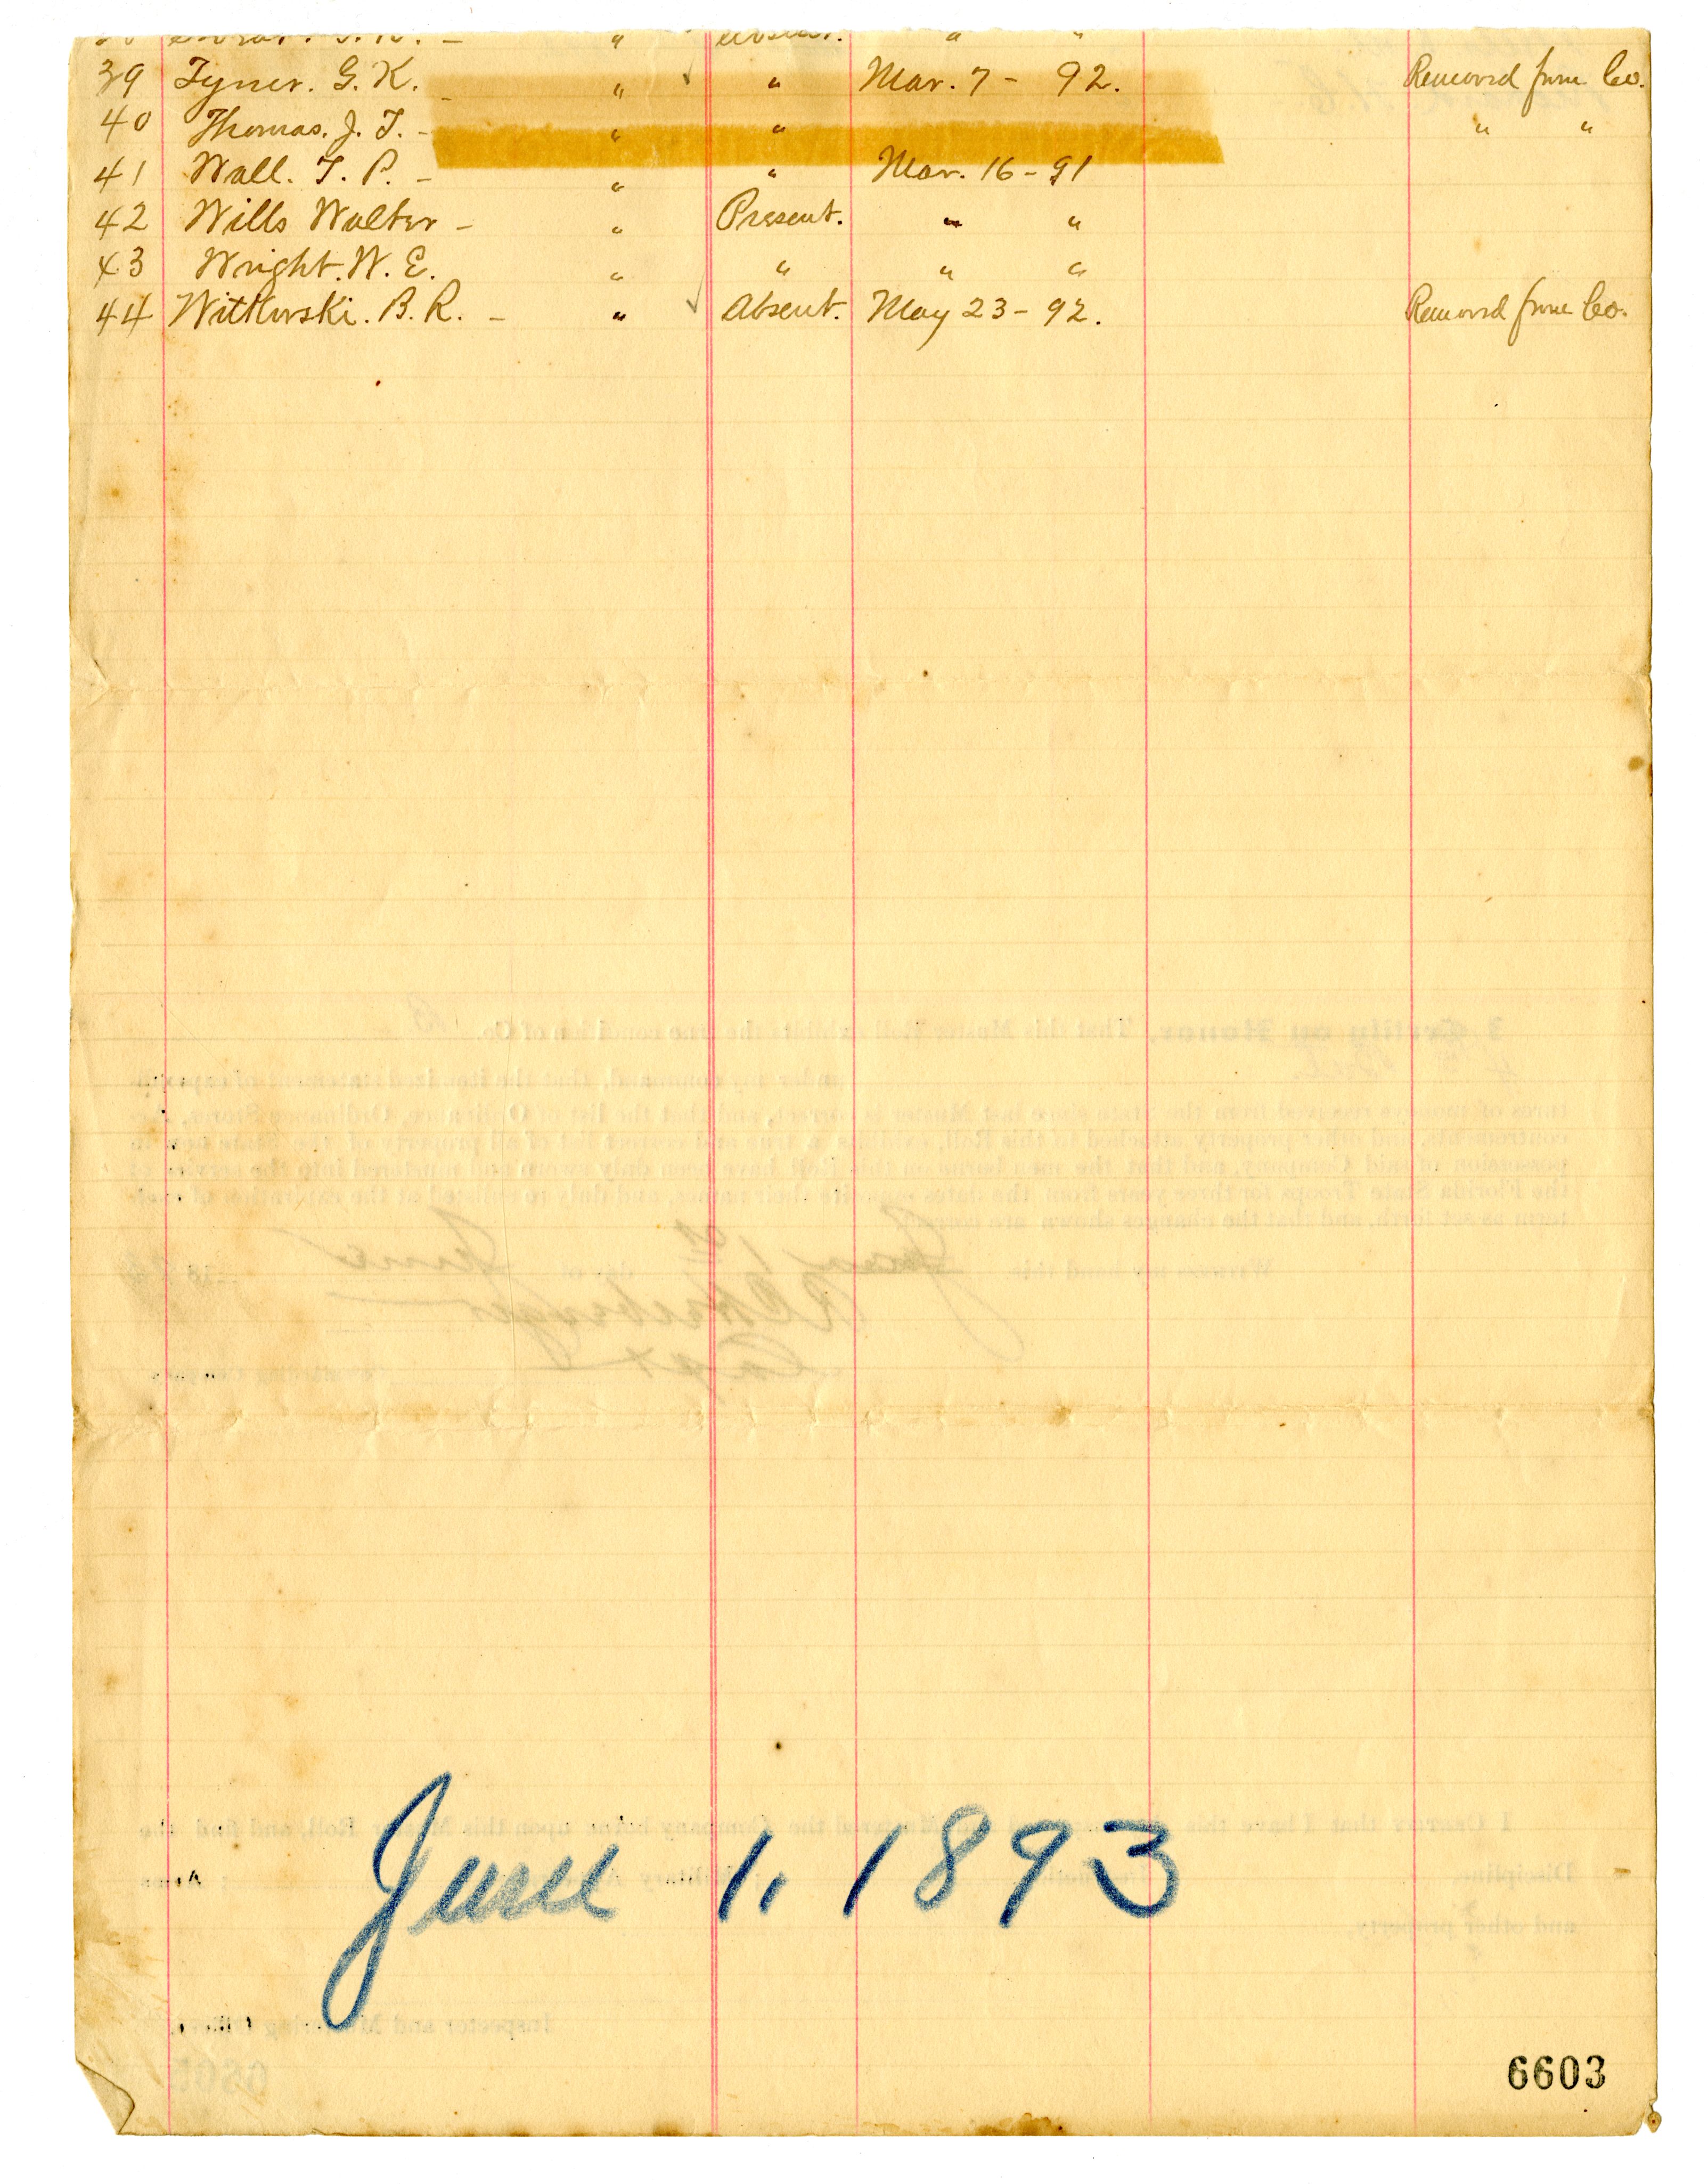 39 Tyner. G. K. " " Mar. 7 - 92. Removed from Co.
40 Thomas. J. T. - " " " "
41 Wall. T. P. - " " Mar. 16 - 91
42 Wills Walter - " Present. " "
43 Wright. W. E. " " " "
44 Witkovski. B. R. - " Absent. May 23 - 92. Removed from Co.
June 1, 1893
6603